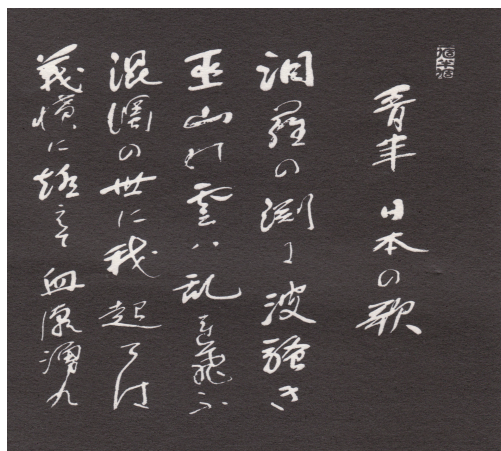 青年 日本の歌
汨羅の渕に波騒き
巫山の雲ハ乱れ飛ふ
混濁の世に我起ては
義憤に燃えて 血潮湧く